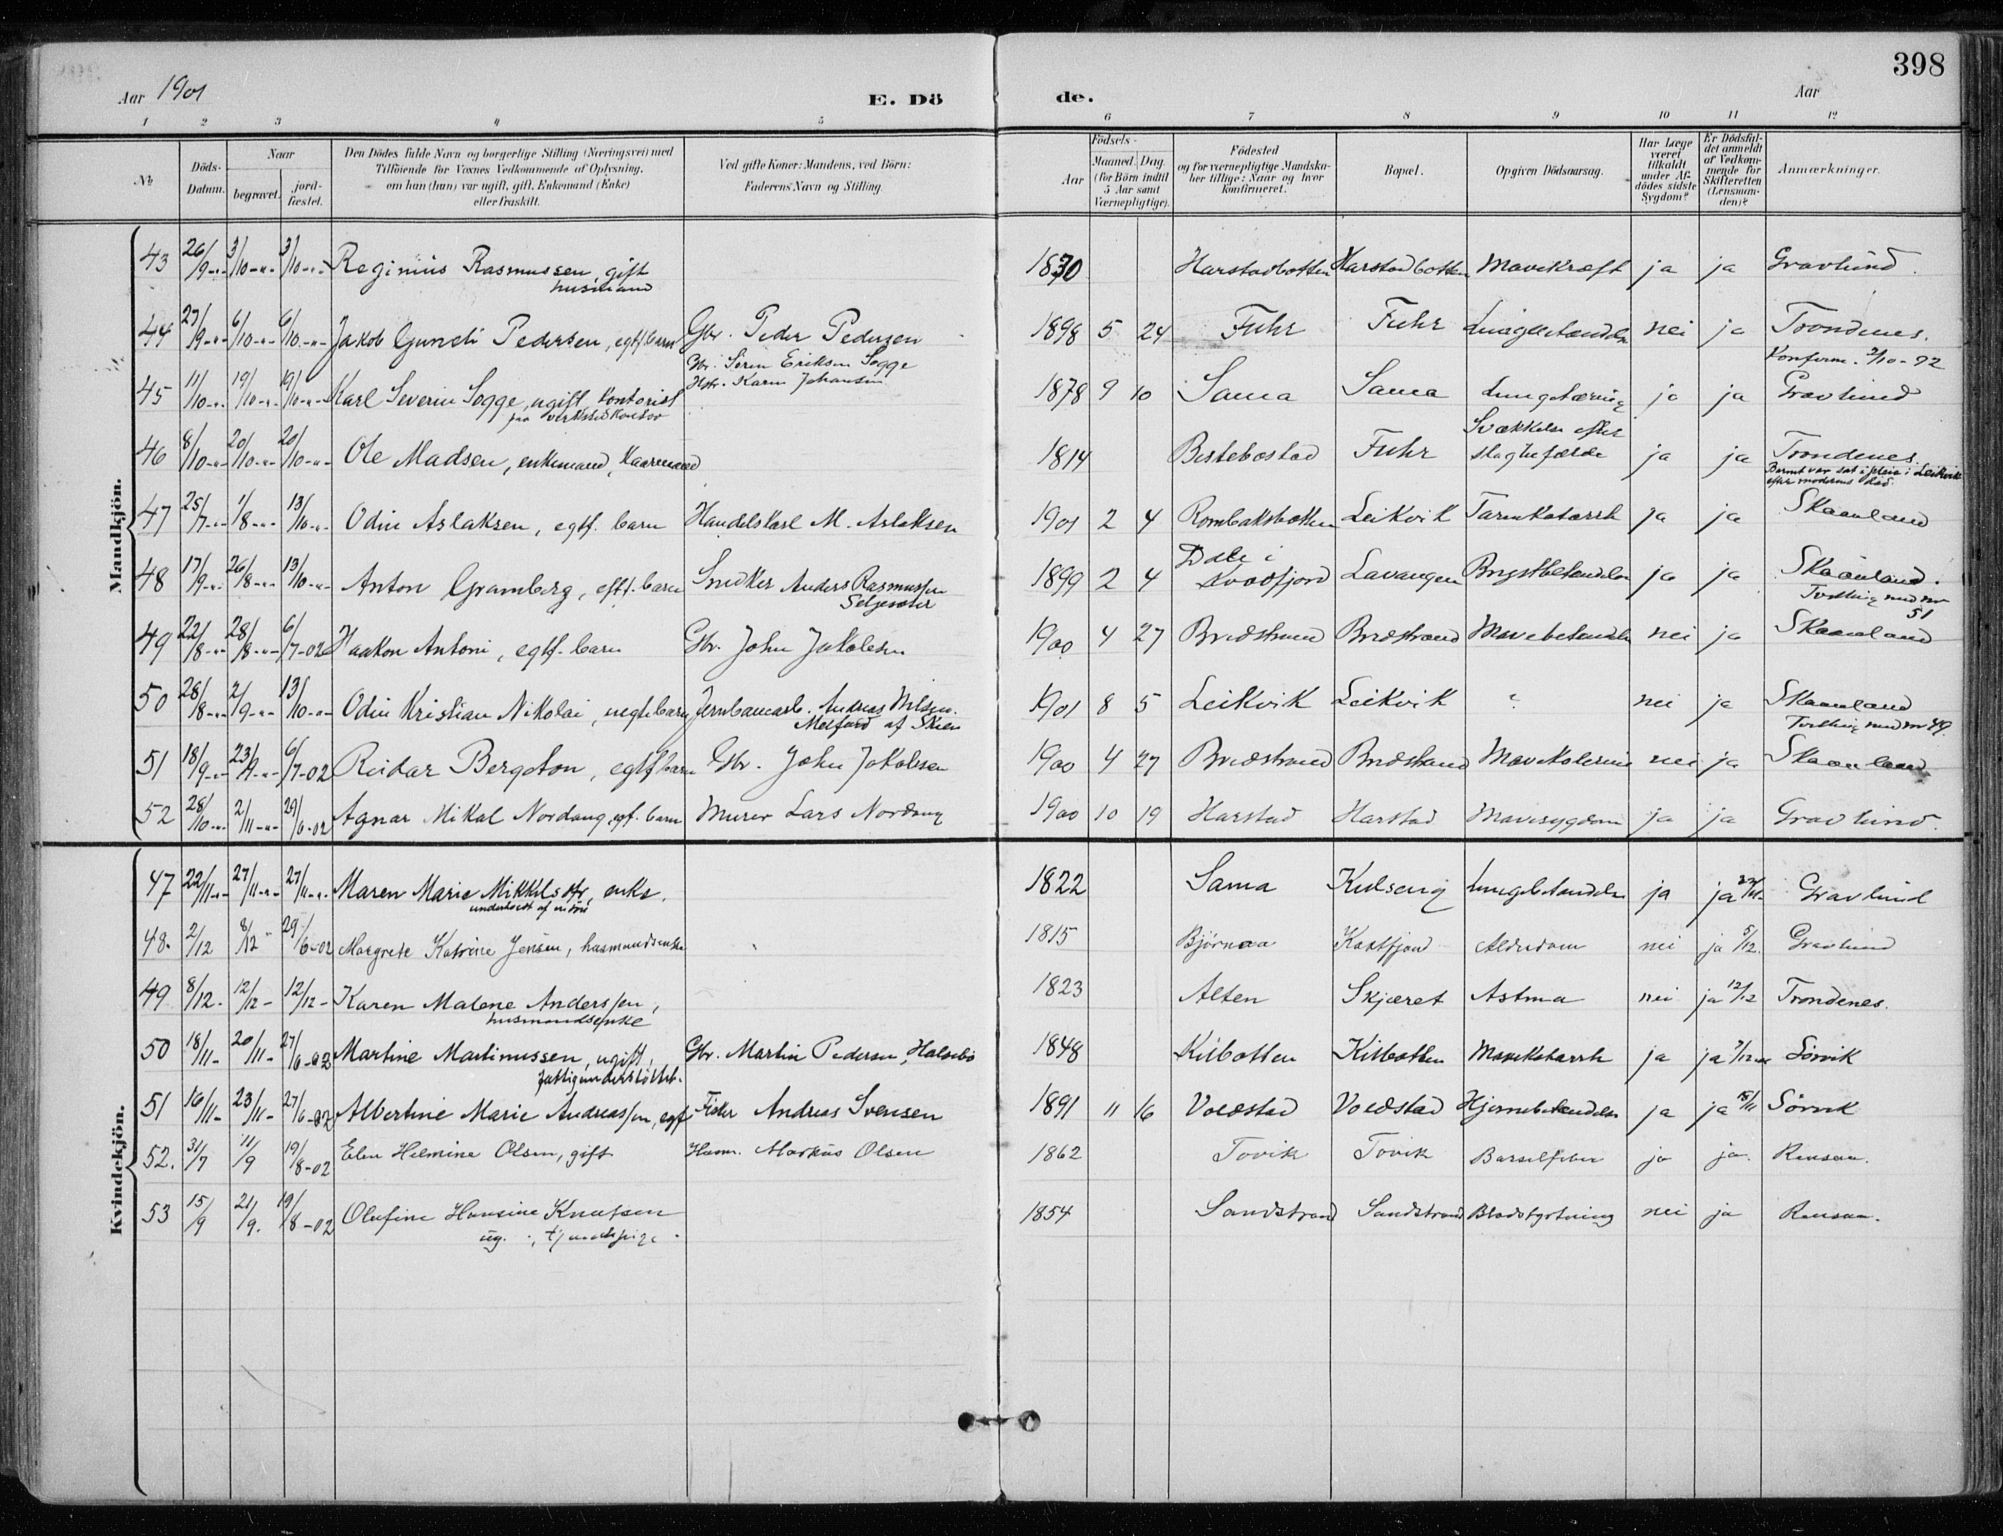 398
Aar 1901
E. Dö
de.
Aar
1 2 3 4 5 6 7 8 9 10 11 12
No.
Döds-Datum.
Naar
begravet.
jord-fæstet.
Den Dödes fulde Navn og borgerlige Stilling (Næringsvei) med
Tilföiende for Voxnes Vedkommende af Oplysning,
om han (hun) var ugift, gift, Enkemand (Enke)
eller fraskilt.
Ved gifte Koner: Mandens, ved Börn:
Faderens Navn og Stilling.
Födsels-
Aar
Maaned. Dag.
(for Börn indtil
5 Aar samt
Værnepligtige).
Födested
og for værnepligtige Mandska-
ber tillige: Naar og hvor
konfirmeret.
Bopæl.
Opgiven Dödsaarsag.
Har Læge
været
tilkaldt
under Af-
dödes sidste
Sygdom?
Er Dödsfal-
det anmeldt
af Vedkom-
mende for
Skifteretten
(Lensman-
den)?
Anmærkninger.
Mandkjön.
43 26/9 3/10 3/10 Reginius Rasmussen, gift 1830 Harstadbotten Harstadbotten Mavekræft ja ja Gravlund.
husmand
44 27/9 6/10 6/10 Jakob Gunch Pedersen, egtf. barn Gbr. Peder Pedersen 1898 5 24 Fuhr Fuhr nei ja Trondenes.
Gbr. Sören Eriksen Sogge Konfirm. 2/10-92
45 11/10 19/10 19/10 Karl Severin Sogge, ugift, kontorist Hstr. Karen Johansen 1878 9 10 Sama Sama Lungetæring ja ja Gravlund
paa verkstedkontor
Svækkelse efter
46 8/10 20/10 20/10 Ole Madsen, enkemand, kaarmand 1814 Bestebostad Fuhr ja ja Trondenes.
Barnet var sat i pleie i Leikvik
efter moderens död.
47 25/7 1/8 13/10 Odin Aslaksen, egtf. barn Handelskarl M. Aslaksen 1901 2 4 Rombaksbotten Leikvik Tarmkatarrh ja ja Skaanland
Dale i
48 17/9 26/8 13/10 Anton Gramberg, egtf. barn Snedker Anders Rasmussen 1899 2 4 Kvædfjord Lavangen Brystbetændelse ja ja Skaanland.
Tvilling med nr
51
49 22/8 28/8 6/7-02 Haakon Antoni, egtf. barn Gbr. John Jakobsen 1900 4 27 Bredstrand Bredstrand Mavebetændelse nei ja Skaanland
50 28/8 2/9 13/10 Odin Kristian Nikolai, uegte barn Jernbanearb. Andreas Nilsen 1901 8 5 Leikvik Leikvik ? nei ja Skaanland
af Skien Tvilling med nr 49.
51 18/9 23/9 6/7-02 Reidar Bergoton, egtf. barn Gbr. John Jakobsen 1900 4 27 Bredstrand Bredstrand Mavekolerine nei ja Skaanland
52 28/10 2/11 29/6-02 Agnar Mikal Nordang, egtf. barn Murer Lars Nordang 1900 10 19 Harstad Harstad Mavesygdom ja ja Gravlund.
Kvindekjön.
47 22/11 27/11 27/11 Maren Marie Mikkelsdtr, enke. 1822 Sama Kulseng Lungebetændelse ja ja Gravlund
48. 2/12 8/12 29/6-02 Margrete Katrine Jensen, husmandsenke 1815 Bjørnaa Kastfjord Alderdom nei ja 5/12. Gravlund
49 8/12. 12/12 12/12 Karen Malene Anderssen, 1823 Alten Skjæret Astma nei ja 12/12 Trondenes.
husmandsenke
50 18/11 20/11 27/6-02 Martine Martinussen, ugift, Gbr. Martin Pedersen, Halsebø 1848 Kilbotten Kilbotten Mavekatarrh ja ja 7/12 Sørvik
fattigunderstöttet.
51 16/11 23/11 27/6-02 Albertine Marie Andreassen, egtf Fisker Andreas Svensen 1891 11 16 Voldstad Voldstad Hjernebetændelse ja ja Sørvik
52. 31/7 11/9 19/8-02 Elen Helmine Olsen, gift Husm. Markus Olsen 1862 Tovik Tovik Barselfeber ja ja. Rensaa.
53 15/9 21/9. 19/8-02 Olufine Hansine Knutsen 1854 Sandstrand Sandstrand Blodstyrtning nei ja Rensaa.
ug. tjenestepige.